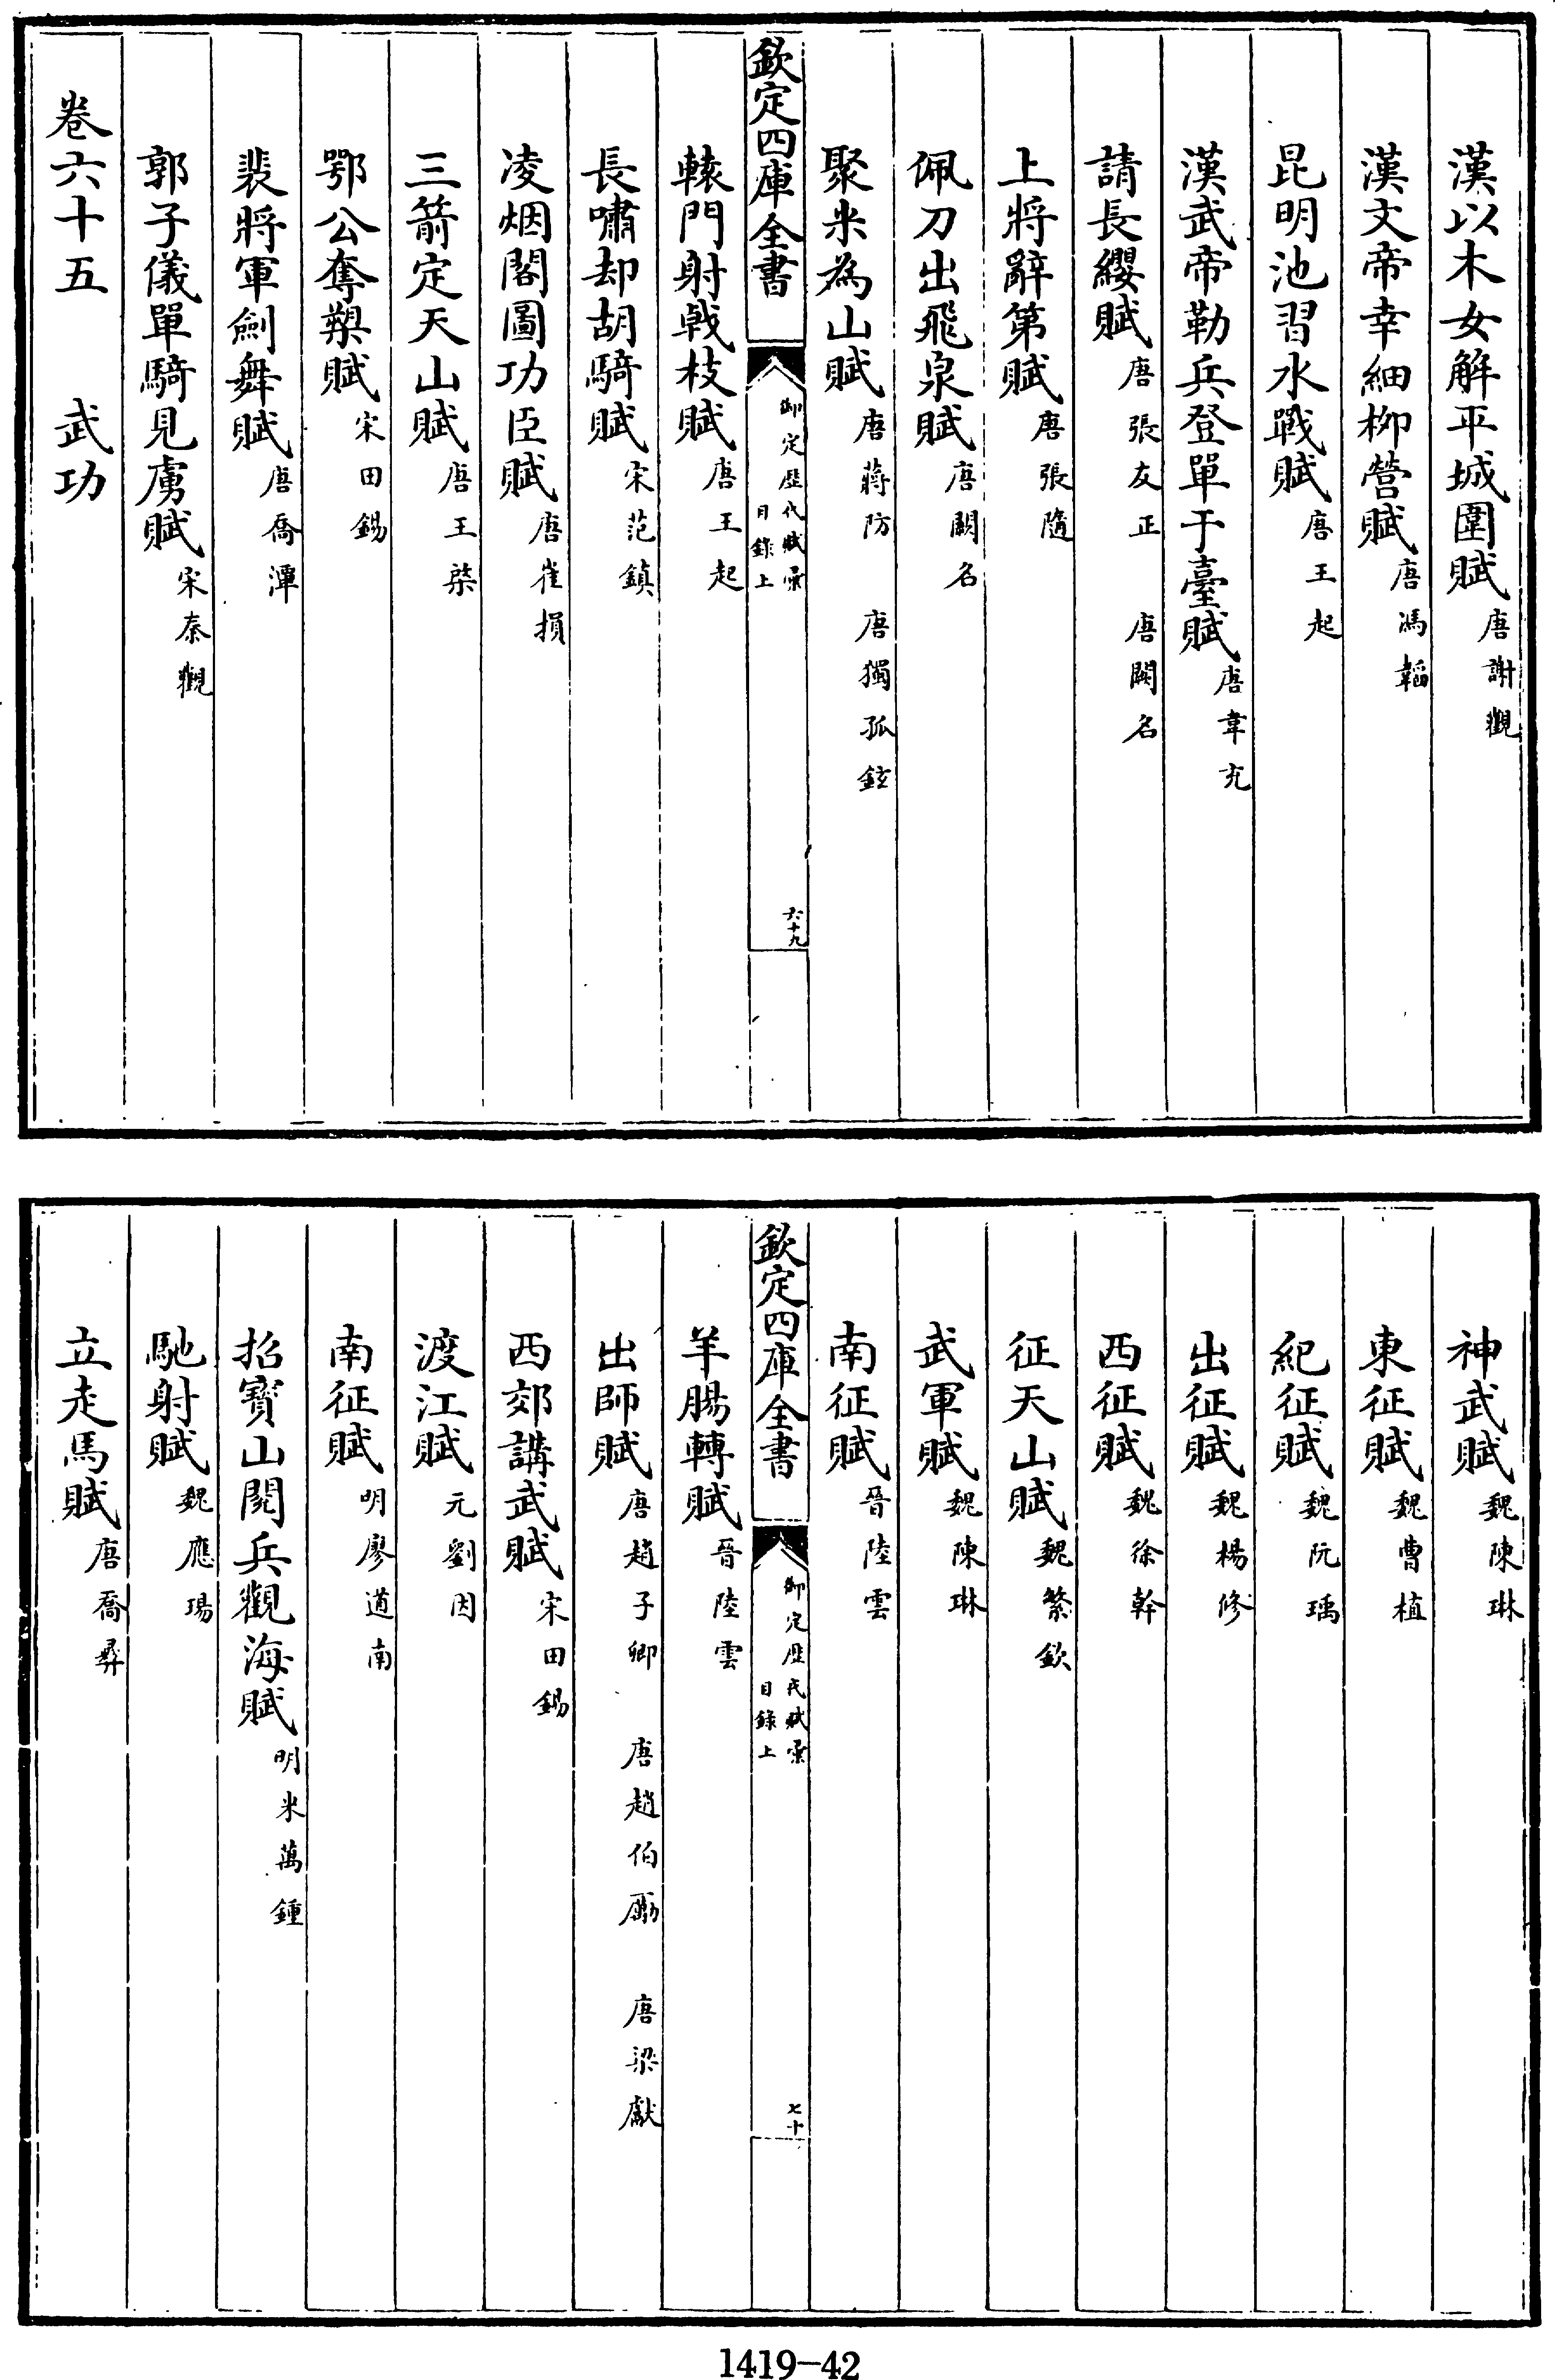 漢以木女解平城圍賦唐謝觀
漢文帝幸細柳營賦唐馮韜
昆明池習水戰賦唐王起
漢武帝勒兵登單于臺賦唐韋充
請長纓賦唐張友正 唐闕名
上將辭第賦唐張隨
佩刀出飛泉賦唐闕名
聚米為山賦唐蔣防 唐獨孤鉉
欽定四庫全書 御定歷代賦彙目錄上 六十九
轅門射戟枝賦唐王起
長嘯却胡騎賦宋范鎮
凌烟閣圖功臣賦唐崔損
三箭定天山賦唐王棨
鄂公奪槊賦宋田錫
裴將軍劍舞賦唐喬潭
郭子儀單騎見虜賦宋秦觀
卷六十五 武功
神武賦魏陳琳
東征賦魏曹植
紀征賦魏阮瑀
出征賦魏楊修
西征賦魏徐幹
征天山賦魏繁欽
武軍賦魏陳琳
南征賦晉陸雲
欽定四庫全書 御定歷代賦彙目錄上 七十
羊腸轉賦晉陸雲
出師賦唐趙子卿 唐趙伯勵 唐梁獻
西郊講武賦宋田錫
渡江賦元劉因
南征賦明廖道南
招寶山閱兵觀海賦明米萬鍾
馳射賦魏應瑒
立走馬賦唐喬彝
1419-42